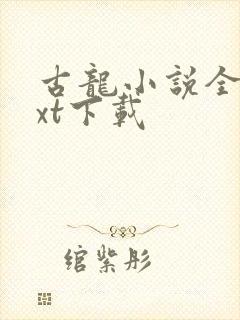 古龍小說全
xt下載
綰紫彤